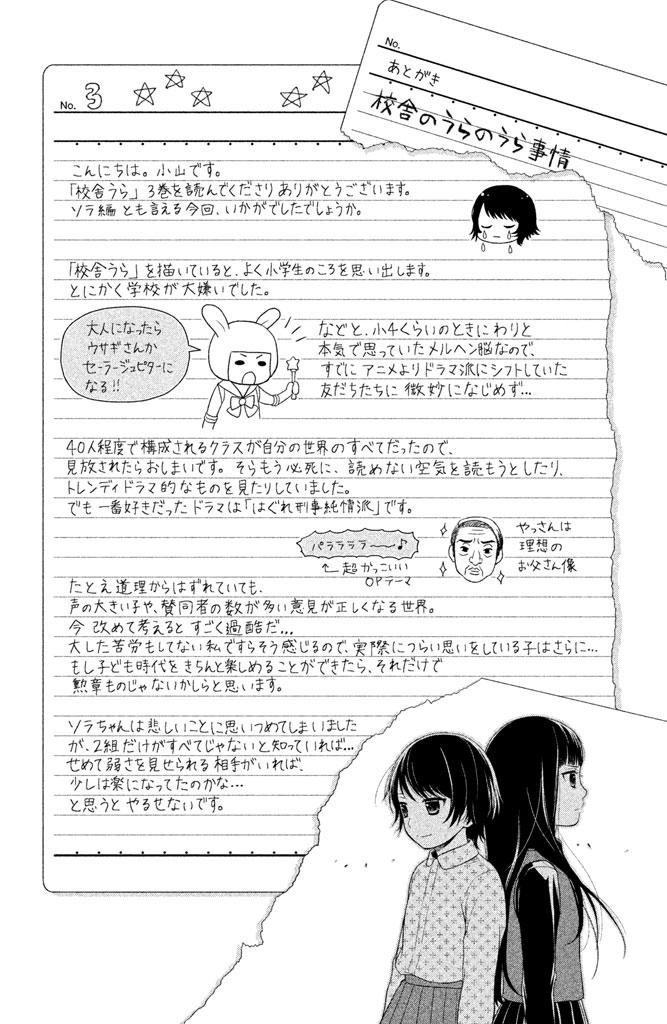 No.
あとがき
校舎のうらのうら事情
No. 3
こんにちは。小山です。
「校舎うら」3巻を読んでくださりありがとうございます。
ソラ編とも言える今回、いかがでしたでしょうか。
「校舎うら」を描いていると、よく小学生のころを思い出します。
とにかく学校が大嫌いでした。
大人になったら
ウサギさんか
セーラージュピターに
なる!!
などと、小4くらいのときにわりと
本気で思っていたメルヘン脳なので、
すでにアニメよりドラマ派にシフトしていた
友だちたちに微妙になじめず…
40人程度で構成されるクラスが自分の世界のすべてだったので、
見放されたらおしまいです。そらもう必死に、読めない空気を読もうとしたり、
トレンディドラマ的なものを見たりしていました。
でも一番好きだったドラマは「はぐれ刑事純情派」です。
パララララ〜♪
←超かっこいい
OPテーマ
やっさんは
理想の
お父さん像
たとえ道理からはずれていても、
声の大きい子や、賛同者の数が多い意見が正しくなる世界。
今改めて考えるとすごく過酷だ…
大した苦労もしてない私ですらそう感じるので、実際につらい思いをしている子はさらに…
もし子ども時代をきちんと楽しめることができたら、それだけで
勲章ものじゃないかしらと思います。
ソラちゃんは悲しいことに思いつめてしまいました
が、2組だけがすべてじゃないと知っていれば…
せめて弱さを見せられる相手がいれば、
少しは楽になってたのかな…
と思うとやるせないです。